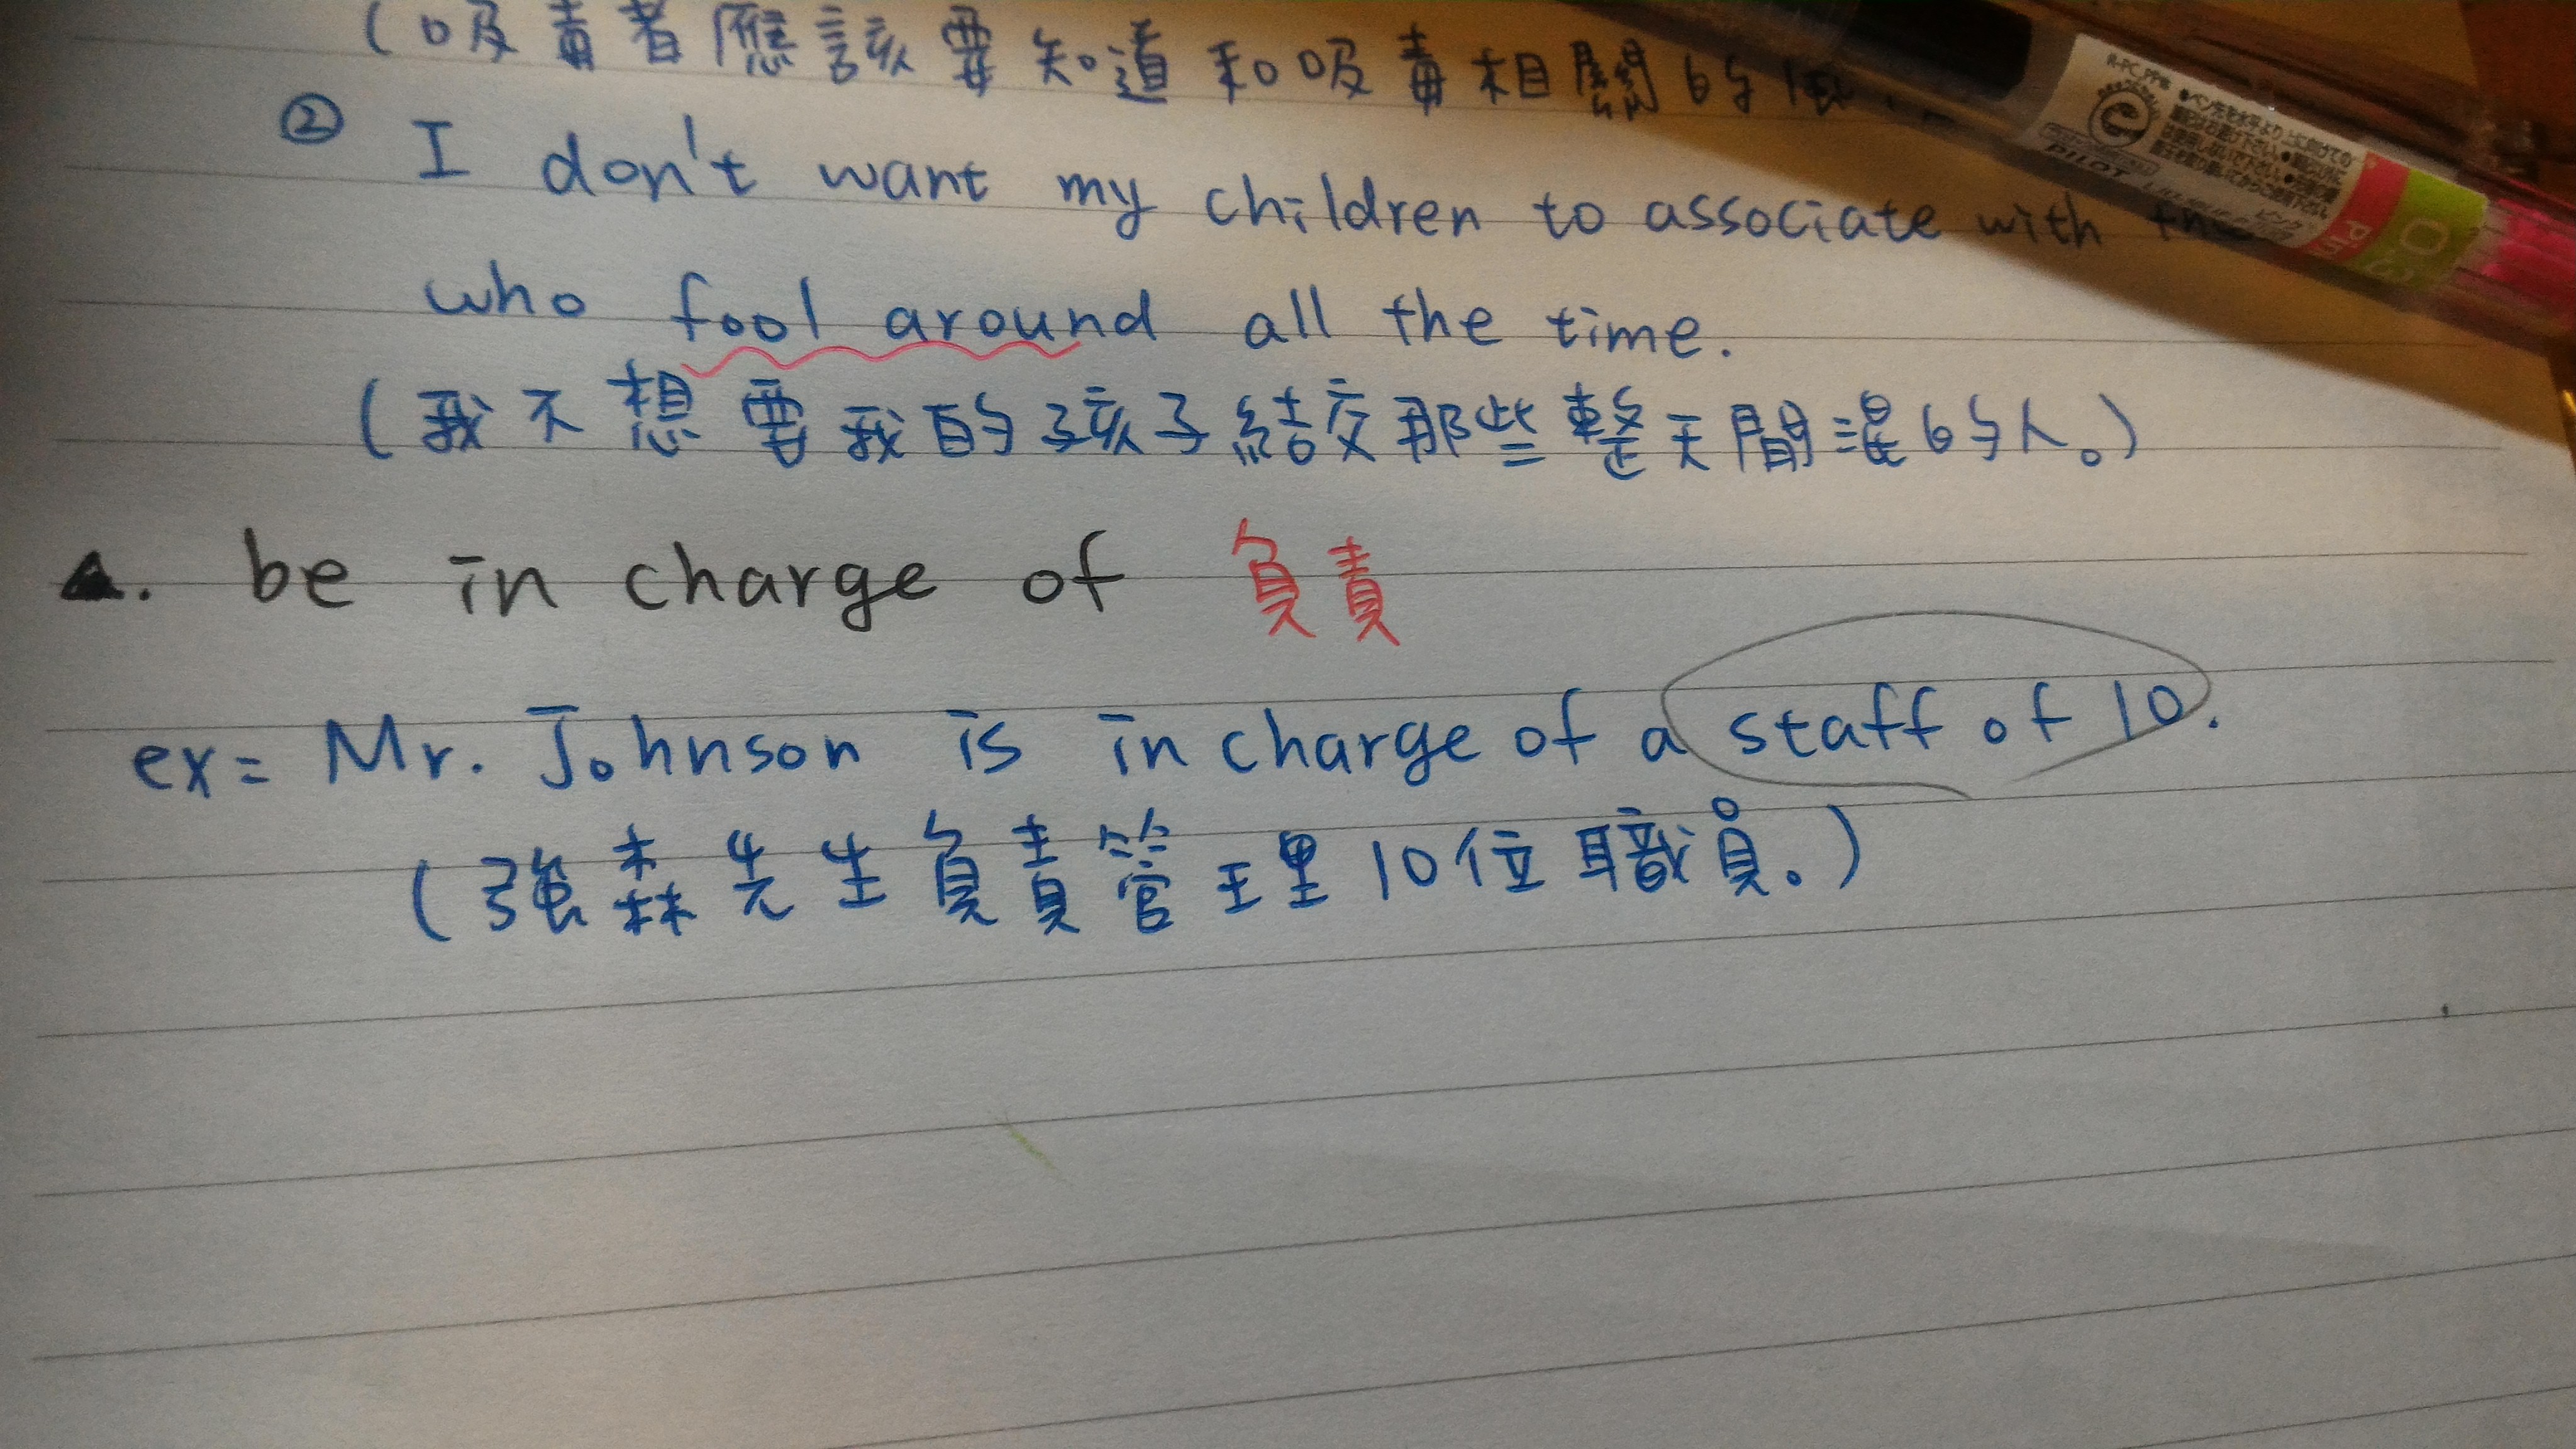 (吸毒者應該要知道和吸毒相關的
② I don't want my children to associate with
who fool around all the time.
(我不想要我的孩子結交那些整天閒混的人。)
▲. be in charge of 負責
ex= Mr. Johnson is in charge of a staff of 10.
(強森先生負責管理10位職員。)
R-PC, PP等
PILOT
ピンク
03